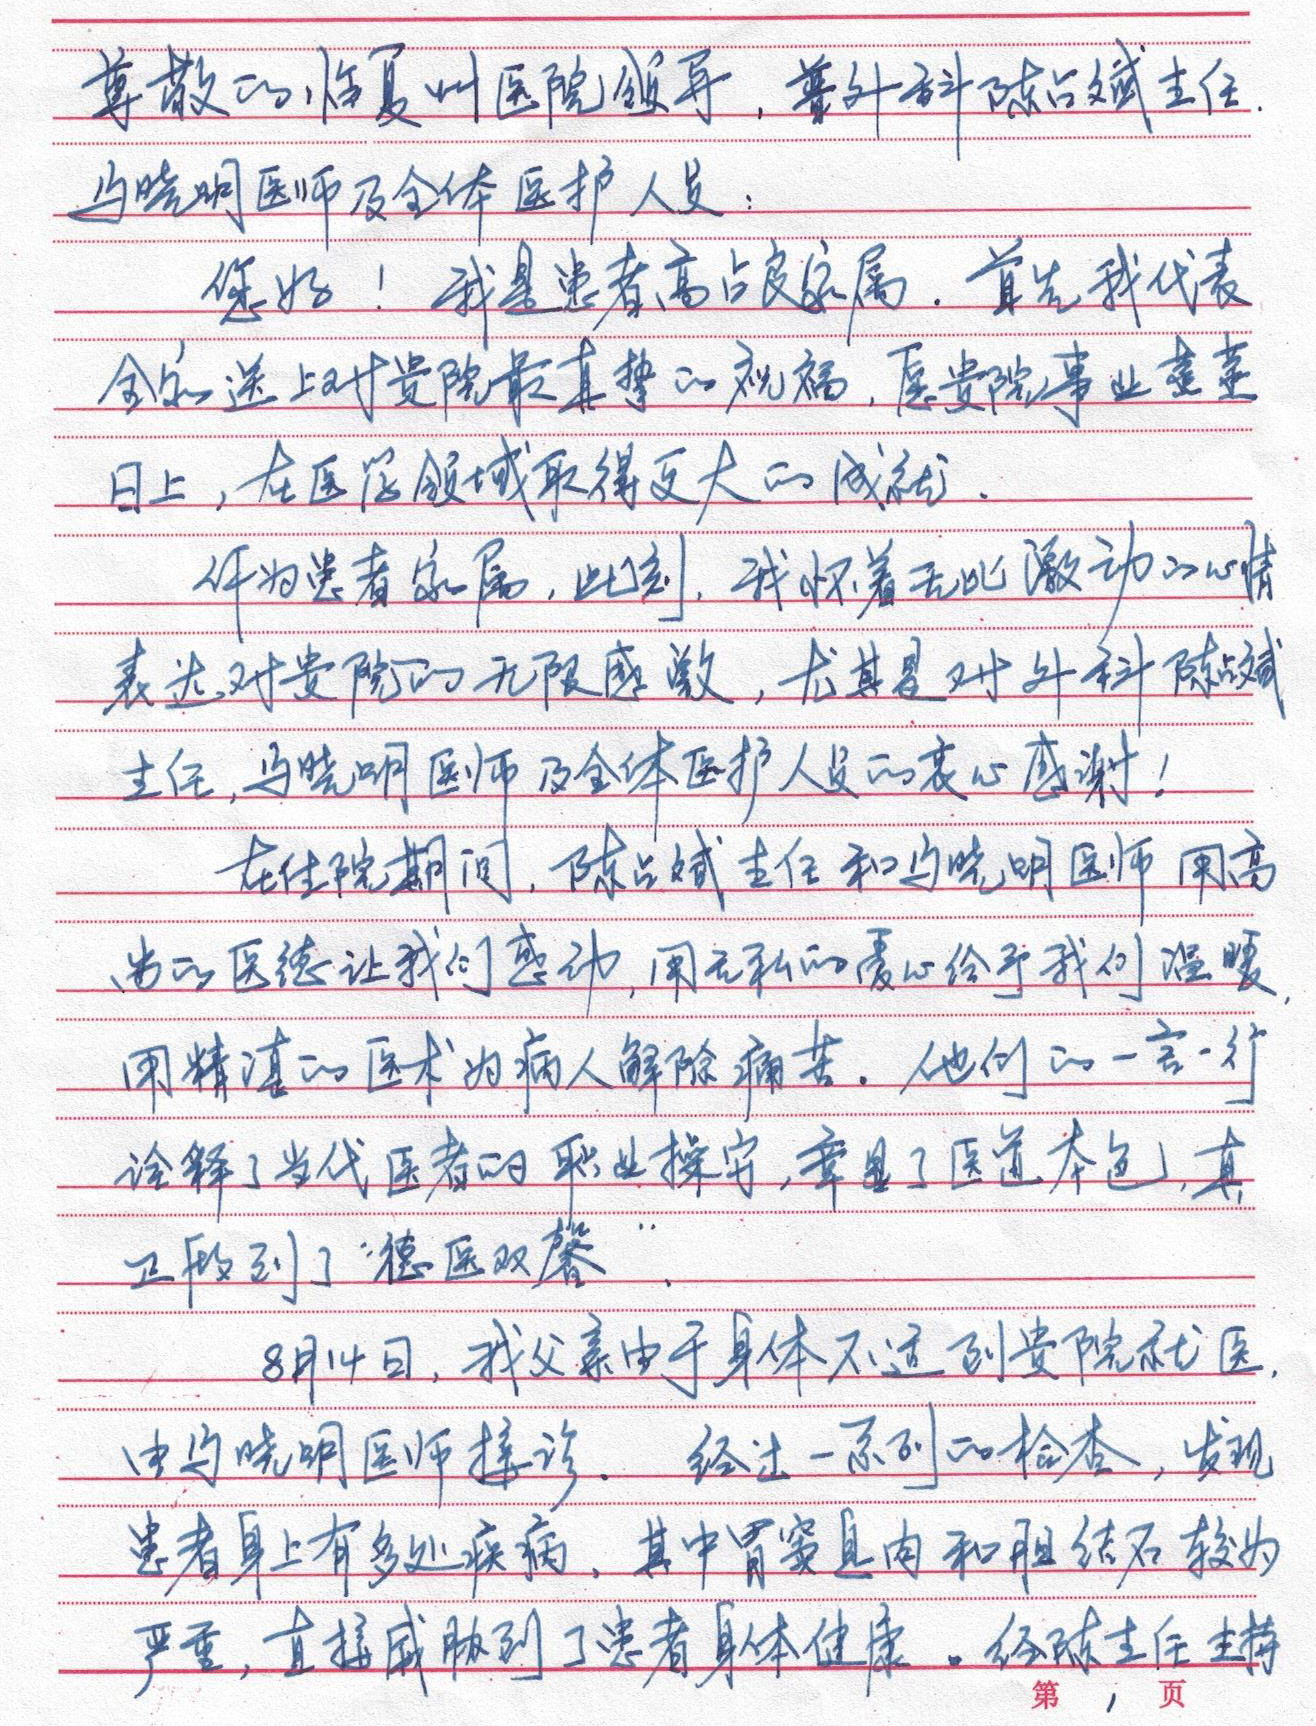 尊敬的临夏州医院领导，普外科陈占斌主任.
马晓明医师及全体医护人员：
您好！我是患者高占良家属．首先我代表
全家送上对贵院最真挚的祝福，愿贵院事业蒸蒸
日上，在医学领域取得更大的成就．
作为患者家属，此刻，我怀着无比激动的心情
表达对贵院的无限感激，尤其是对外科陈占斌
主任，马晓明医师及全体医护人员的衷心感谢！
在住院期间，陈占斌主任和马晓明医师用高
尚的医德让我们感动，用无私的爱心给予我们温暖，
用精湛的医术为病人解除痛苦．他们的一言一行
诠释了当代医者的职业操守，章显了医道本色，真
正做到了“德医双馨”．
8月14日，我父亲由于身体不适到贵院就医．
由马晓明医师接诊．经过一系列的检查，发现
患者身上有多处疾病，其中胃窦息肉和胆结石较为
严重，直接威胁到了患者身体健康．经陈主任主持
第 1 页